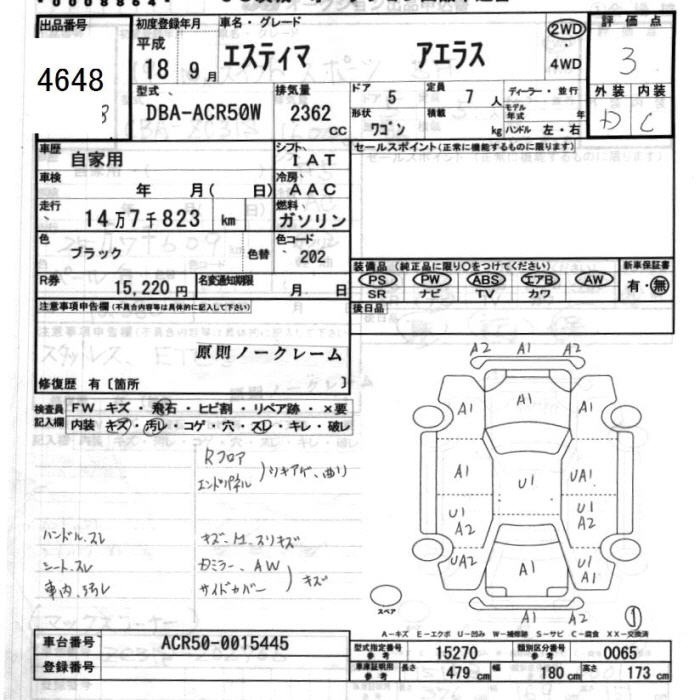 出品番号 初度登録年月 車名・グレード 評価点
4648 平成 18 9月 エスティマ アエラス 2WD・4WD 3
型式 排気量 ドア 定員 ディーラー・並行 外装 内装
DBA-ACR50W 2362 CC 5 7人 モデル年式 年 D C
形状 積載 ワゴン kg ハンドル 左・右
車歴 自家用 シフト IAT セールスポイント(正常に機能するものに限ります)
車検 年 月( 日) 冷房 AAC
走行 14万7千823 km 燃料 ガソリン
色 ブラック 色替 色コード 202
装備品(純正品に限り○をつけてください) 新車保証書
R券 15,220円 名変通知期限 月 日 PS PW ABS エアB AW 有・無
SR ナビ TV カワ
注意事項申告欄(不具合内容等は具体的に記入して下さい) 後日品
原則ノークレーム
修復歴 有〔箇所 〕
検査員記入欄 FW キズ・飛石・ヒビ割・リペア跡・×要
内装 キズ・汚レ・コゲ・穴・スレ・キレ・破レ
Rフロア
エンドパネル
ハンドル、スレ
シート、スレ
車内、汚レ
ドミラー、AW
サイドカバー
キズ
A2 A1 A2
A1 A1 A1
A1 U1 UA1
U1 A2 U1 A2
UA2 A1 U1 A1
A1 A2
スペア
①
A-キズ E-エクボ U-凹み W-補修跡 S-サビ C-腐食 XX-交換済
車台番号 ACR50-0015445 型式指定番号 参考 15270 類別区分番号 参考 0065
登録番号 車庫証明用 参考 長さ 479 cm 幅 180 cm 高さ 173 cm